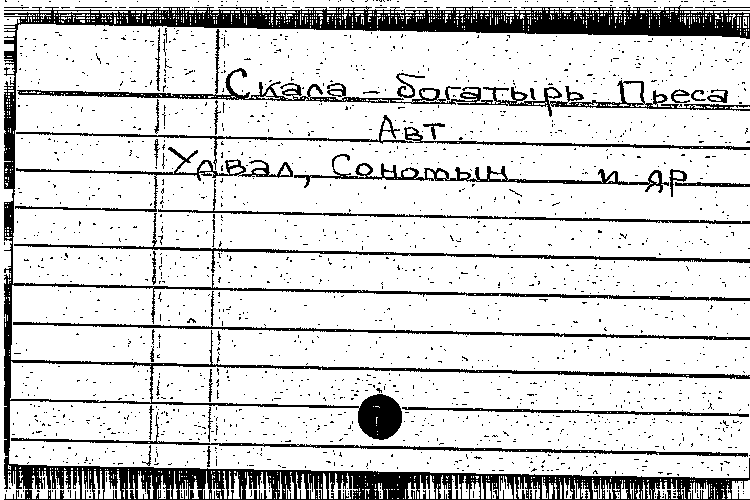 Скала - богатырь. Пьеса.
Авт.
Удвал, Сономын и др